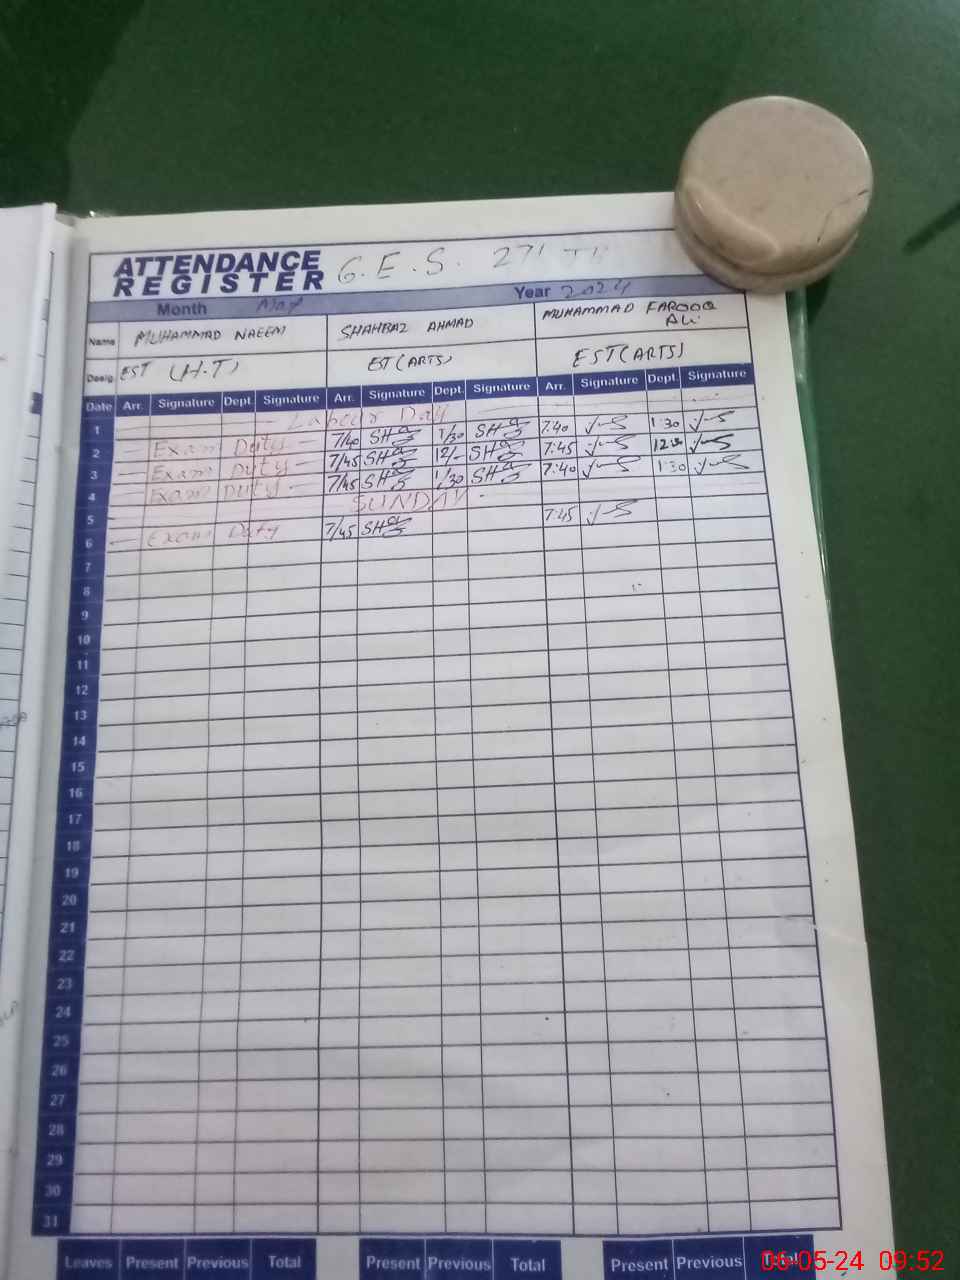 ATTENDANCE REGISTER G.E.S. 271
Month May Year 2024
Name MUHAMMAD NAEEM SHAHBAZ AHMAD MUHAMMAD FAROOQ Ali
Desig. EST (H.T) EST(ARTS) EST(ARTS)
Date Arr. Signature Dept. Signature Arr. Signature Dept. Signature Arr. Signature Dept. Signature
1 Labour Day
2 Exam Duty 7/40 SH 1/30 SH 7:40 1:30
3 Exam Duty 7/45 SH 12/- SH 7:45
4 Exam Duty 7/45 SH 1/30 SH 7:40 1:30
5 SUNDAY
6 Exam Duty 7/45 SH 7:45
7
8
9
10
11
12
13
14
15
16
17
18
19
20
21
22
23
24
25
26
27
28
29
30
31
Leaves Present Previous Total Present Previous Total Present Previous Total
06-05-24 09:52